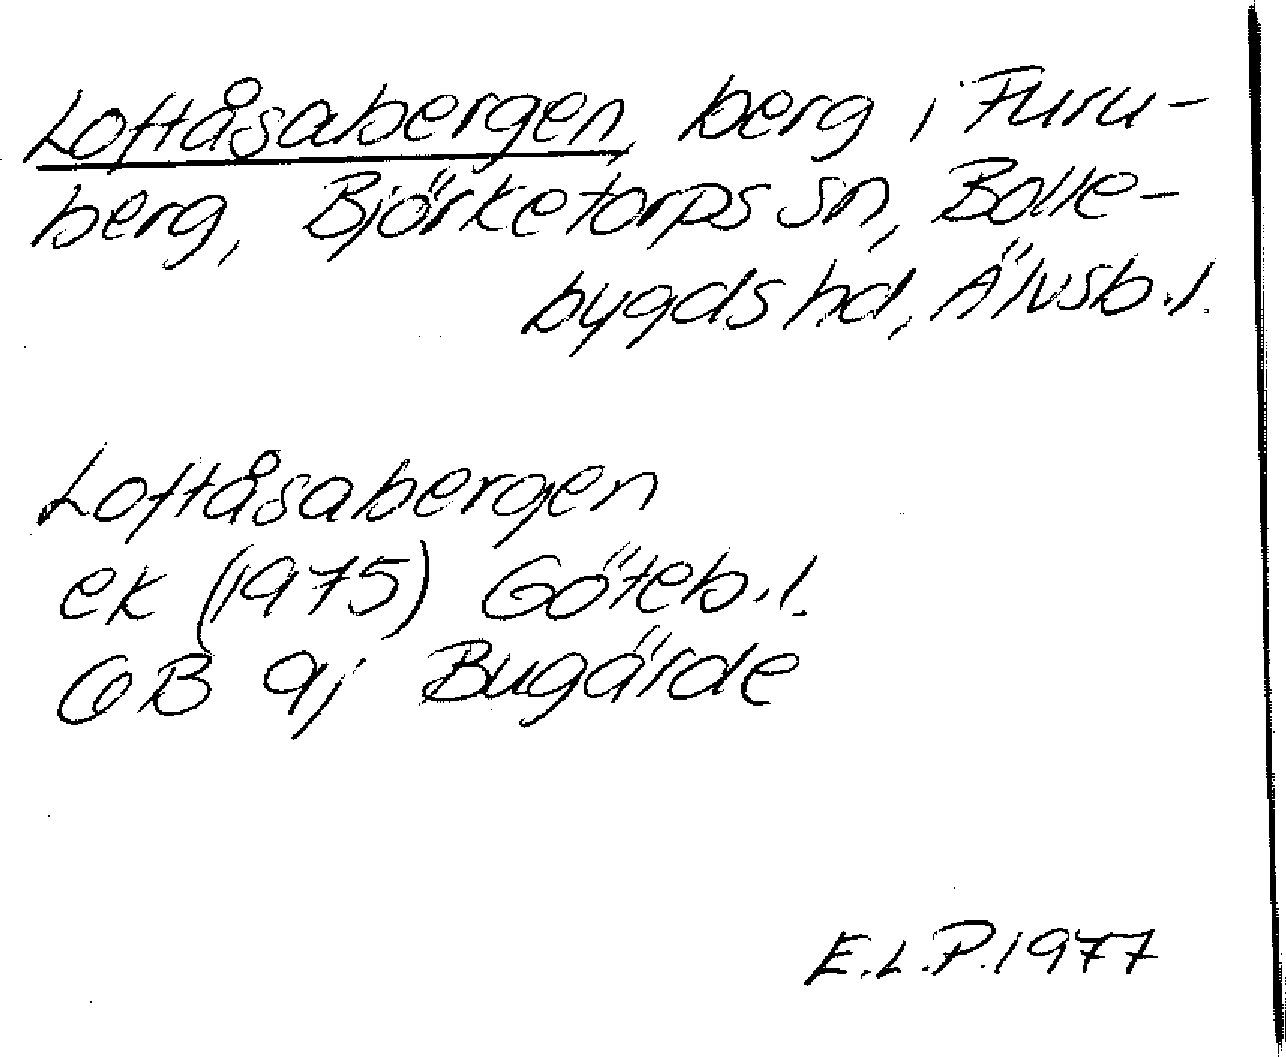 Loftåsabergen, berg i Furu-
berg, Björketorps sn, Bolle-
bygds hd, Älvsb.l.
Loftåsabergen
ek (1975) Göteb.l.
GB 9j Bugärde
E.L.P. 1977